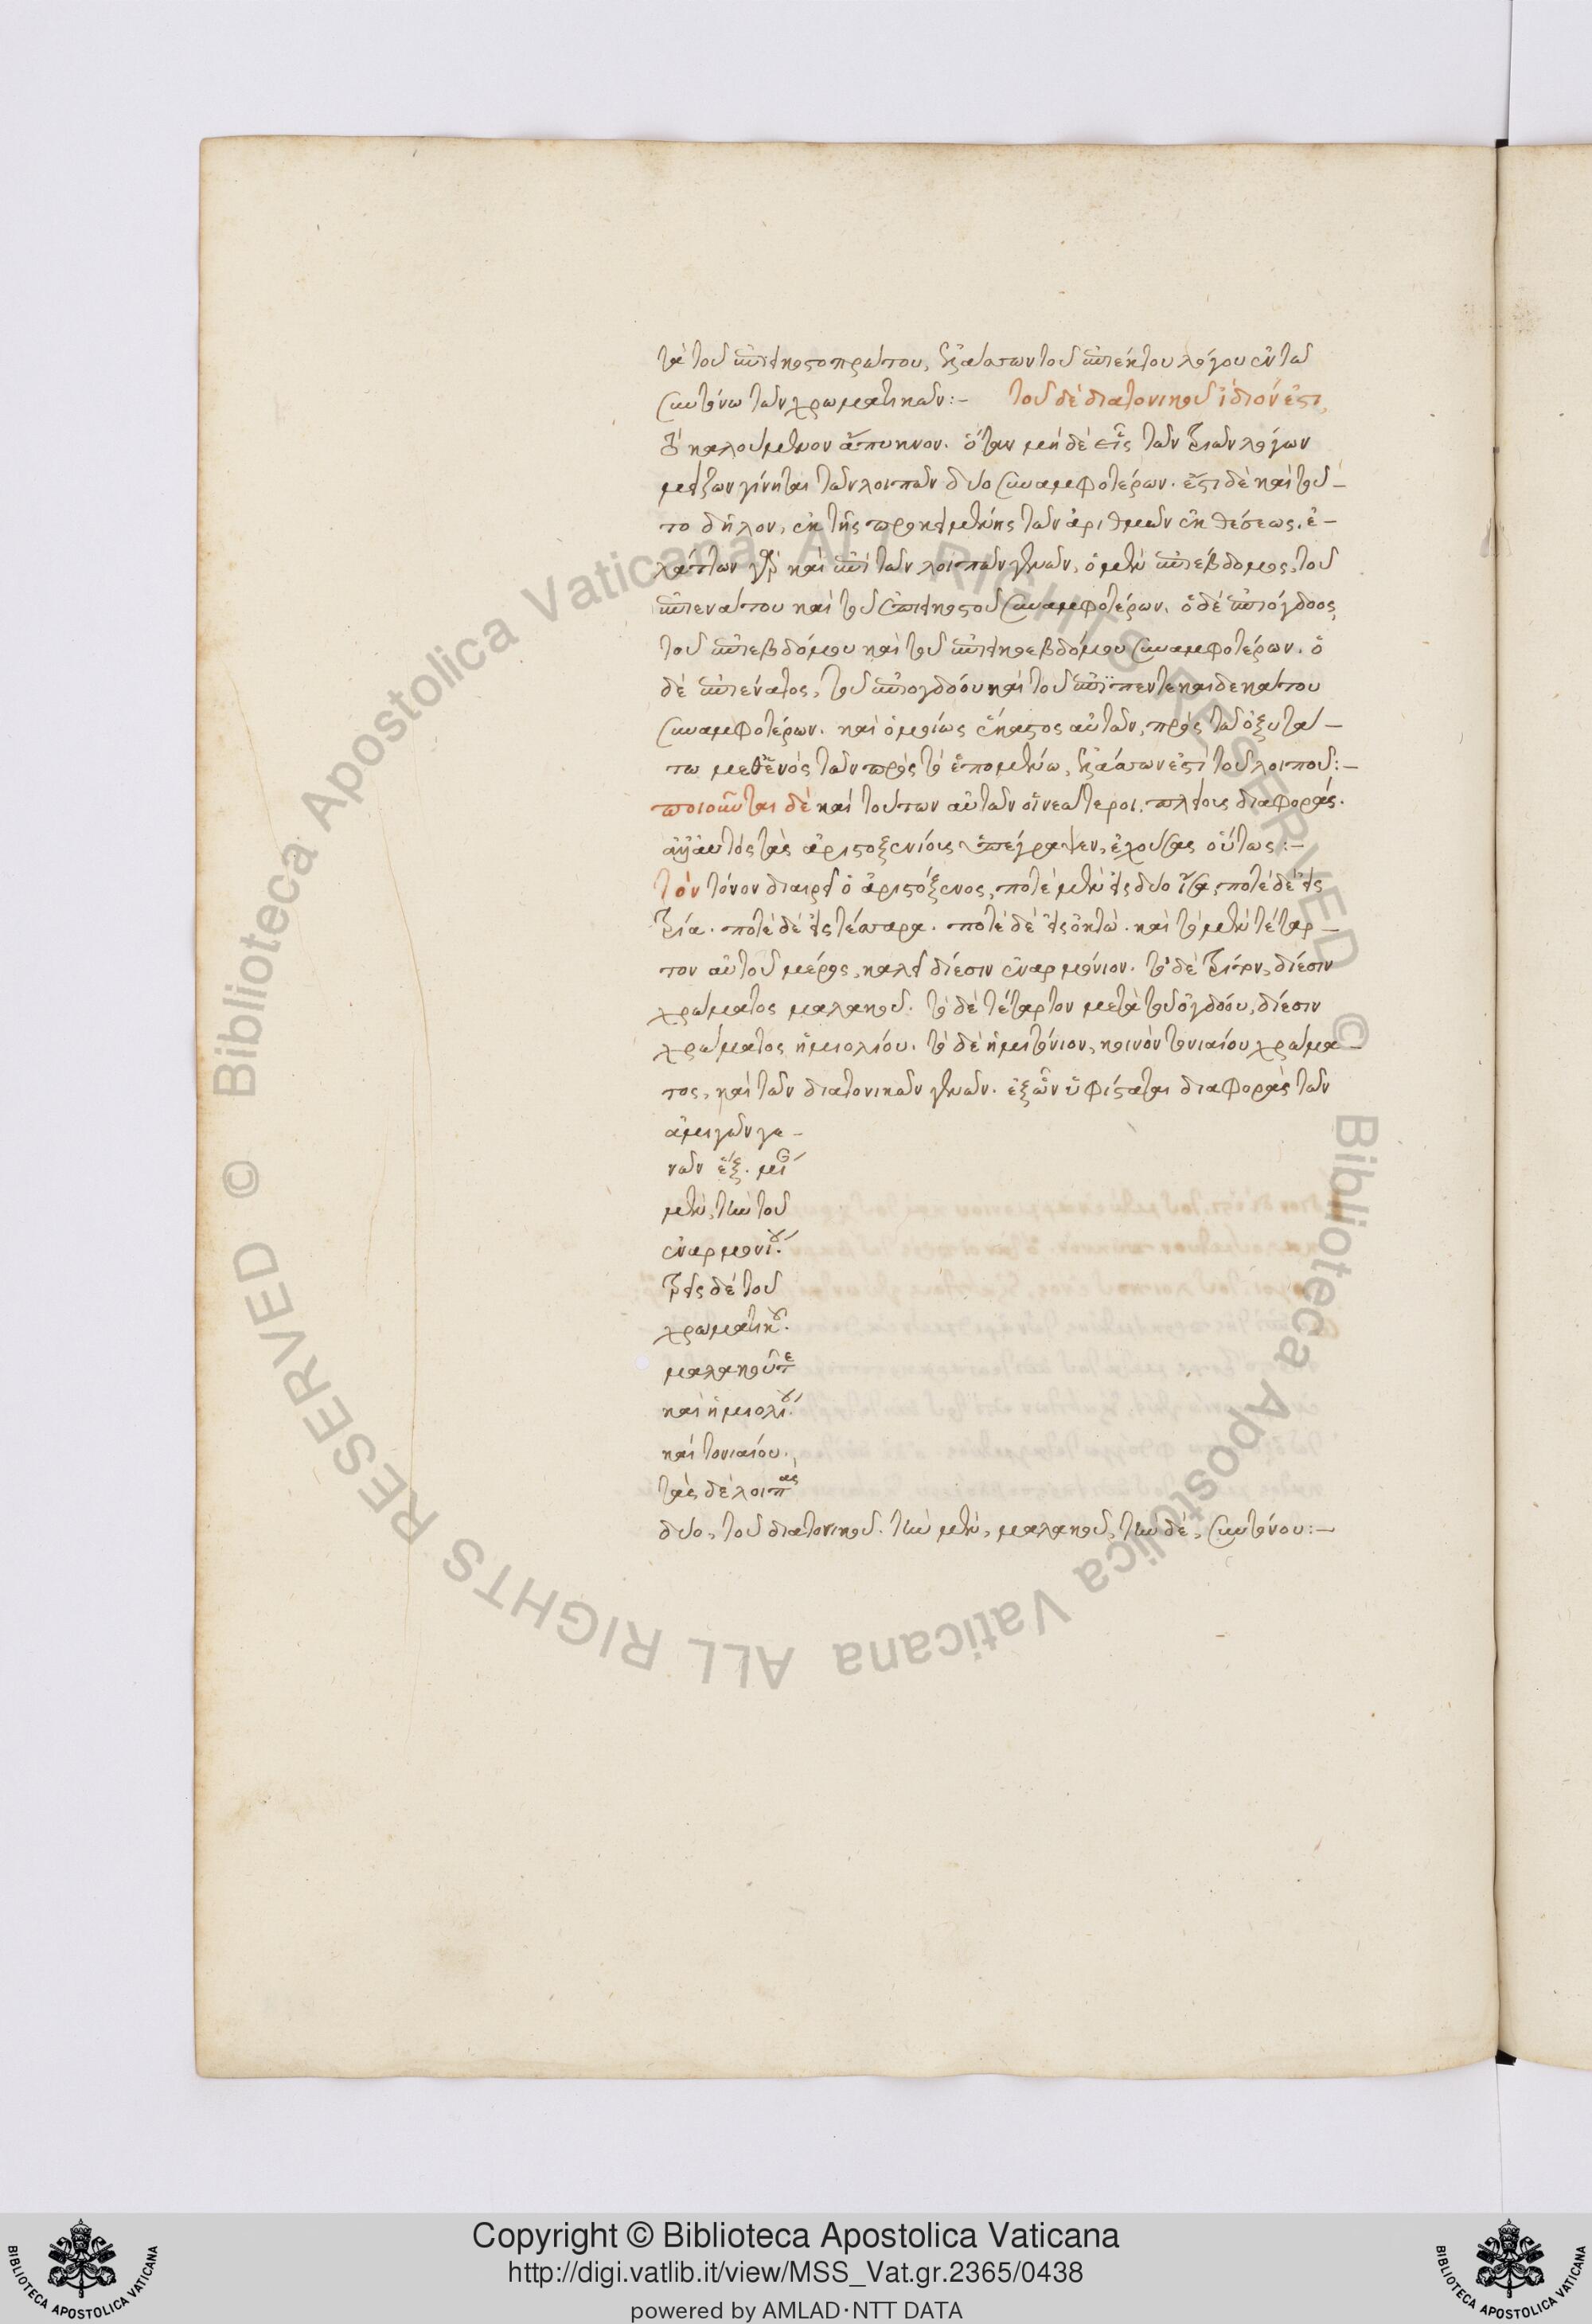 τὰ τοῦ ἐπιεικοστοπρώτου, ἐλάττων τοῦ ἐπιέκτου λόγου ἐν τῶ
συντόνω τῶν χρωματικῶν:– τοῦ δὲ διατονικοῦ ἴδιόν ἐστι,
τὸ καλούμενον ἄπυκνον. ὅταν μὴ δὲ εἷς τῶν τριῶν λόγων
μείζων γίνηται τῶν λοιπῶν δύο συναμφοτέρων. ἔστι δὲ καὶ τοῦ–
το δῆλον, ἐκ τῆς προκειμένης τῶν ἀριθμῶν ἐκθέσεως. ἐ–
λάττων γὰρ καὶ ἐπὶ τῶν λοιπῶν γενῶν, ὁ μὲν ἐπιέβδομος, τοῦ
ἐπιενάτου καὶ τοῦ ἐπιεικοστοῦ συναμφοτέρων. ὁ δὲ ἐπιόγδοος,
τοῦ ἐπιεβδόμου καὶ τοῦ ἐπιεικοεβδόμου συναμφοτέρων. ὁ
δὲ ἐπιένατος, τοῦ ἐπιογδόου καὶ τοῦ ἐπιπεντεκαιδεκάτου
συναμφοτέρων. καὶ ὁμοίως ἕκαστος αὐτῶν, πρὸς τῶ ὀξυτά–
τω μεθ' ἑνὸς τῶν πρὸς τὸ ἑπομένω, ἐλάττων ἐστὶ τοῦ λοιποῦ:–
ποιοῦνται δὲ καὶ τούτων αὐτῶν οἱ νεώτεροι, πλείους διαφοράς.
τὰς ἀριστοξενίους ὑπέγραψεν, ἐχούσας οὕτως:–
τὸν τόνον διαιρεῖ ὁ ἀριστόξενος, ποτὲ μὲν εἰς δύο ἴσα, ποτὲ δὲ εἰς
τρία. ποτὲ δὲ εἰς τέσσαρα. ποτὲ δὲ εἰς ὀκτώ. καὶ τὸ μὲν τέταρ–
τον αὐτοῦ μέρος, καλεῖ δίεσιν ἐναρμόνιον. τὸ δὲ τρίτον, δίεσιν
χρώματος μαλακοῦ. τὸ δὲ τέταρτον μετὰ τοῦ ὀγδόου, δίεσιν
χρώματος ἡμιολίου. τὸ δὲ ἡμιτόνιον, κοινὸν τονιαίου χρώμα–
τος, καὶ τῶν διατονικῶν γενῶν. ἐξ ὧν ὑφίσταται διαφορὰς τῶν
ἀμιγῶν γε–
νῶν ἕξ. μί
μὲν, τὴν τοῦ
ἐναρμονίου.
τρεῖς δὲ τοῦ
χρωματικοῦ.
μαλακοῦ τε
καὶ ἡμιολίου.
καὶ τονιαίου.
τὰς δὲ λοιπὰς
δύο, τοῦ διατονικοῦ. τὴν μὲν, μαλακοῦ, τὴν δὲ, συντόνου:–
Biblioteca Apostolica Vaticana ALL RIGHTS RESERVED ©
Biblioteca Apostolica Vaticana ALL RIGHTS RESERVED ©
Copyright © Biblioteca Apostolica Vaticana
http://digi.vatlib.it/view/MSS_Vat.gr.2365/0438
powered by AMLAD·NTT DATA
BIBLIOTECA APOSTOLICA VATICANA
BIBLIOTECA APOSTOLICA VATICANA